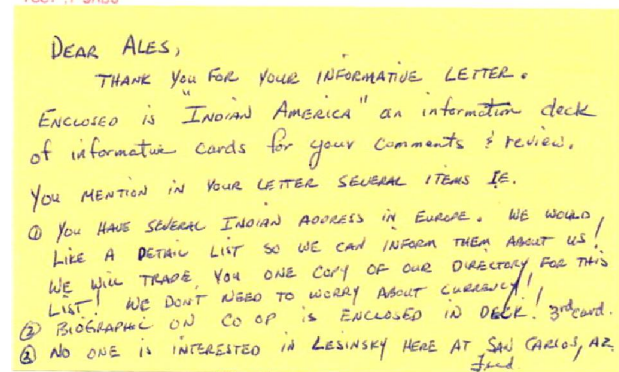 DEAR ALES,
THANK YOU FOR YOUR INFORMATIVE LETTER.
ENCLOSED IS "INDIAN AMERICA" an information deck
of informative cards for your comments & review.
YOU MENTION IN YOUR LETTER SEVERAL ITEMS IE.
① YOU HAVE SEVERAL INDIAN ADDRESS IN EUROPE. WE WOULD
LIKE A DETAIL LIST SO WE CAN INFORM THEM ABOUT US!
WE WILL TRADE YOU ONE COPY OF OUR DIRECTORY FOR THIS
LIST! WE DON'T NEED TO WORRY ABOUT CURRENCY!
② BIOGRAPHIC ON CO OP IS ENCLOSED IN DECK! 3rd card.
③ NO ONE IS INTERESTED IN LESINSKY HERE AT SAN CARLOS, AZ.
Fred